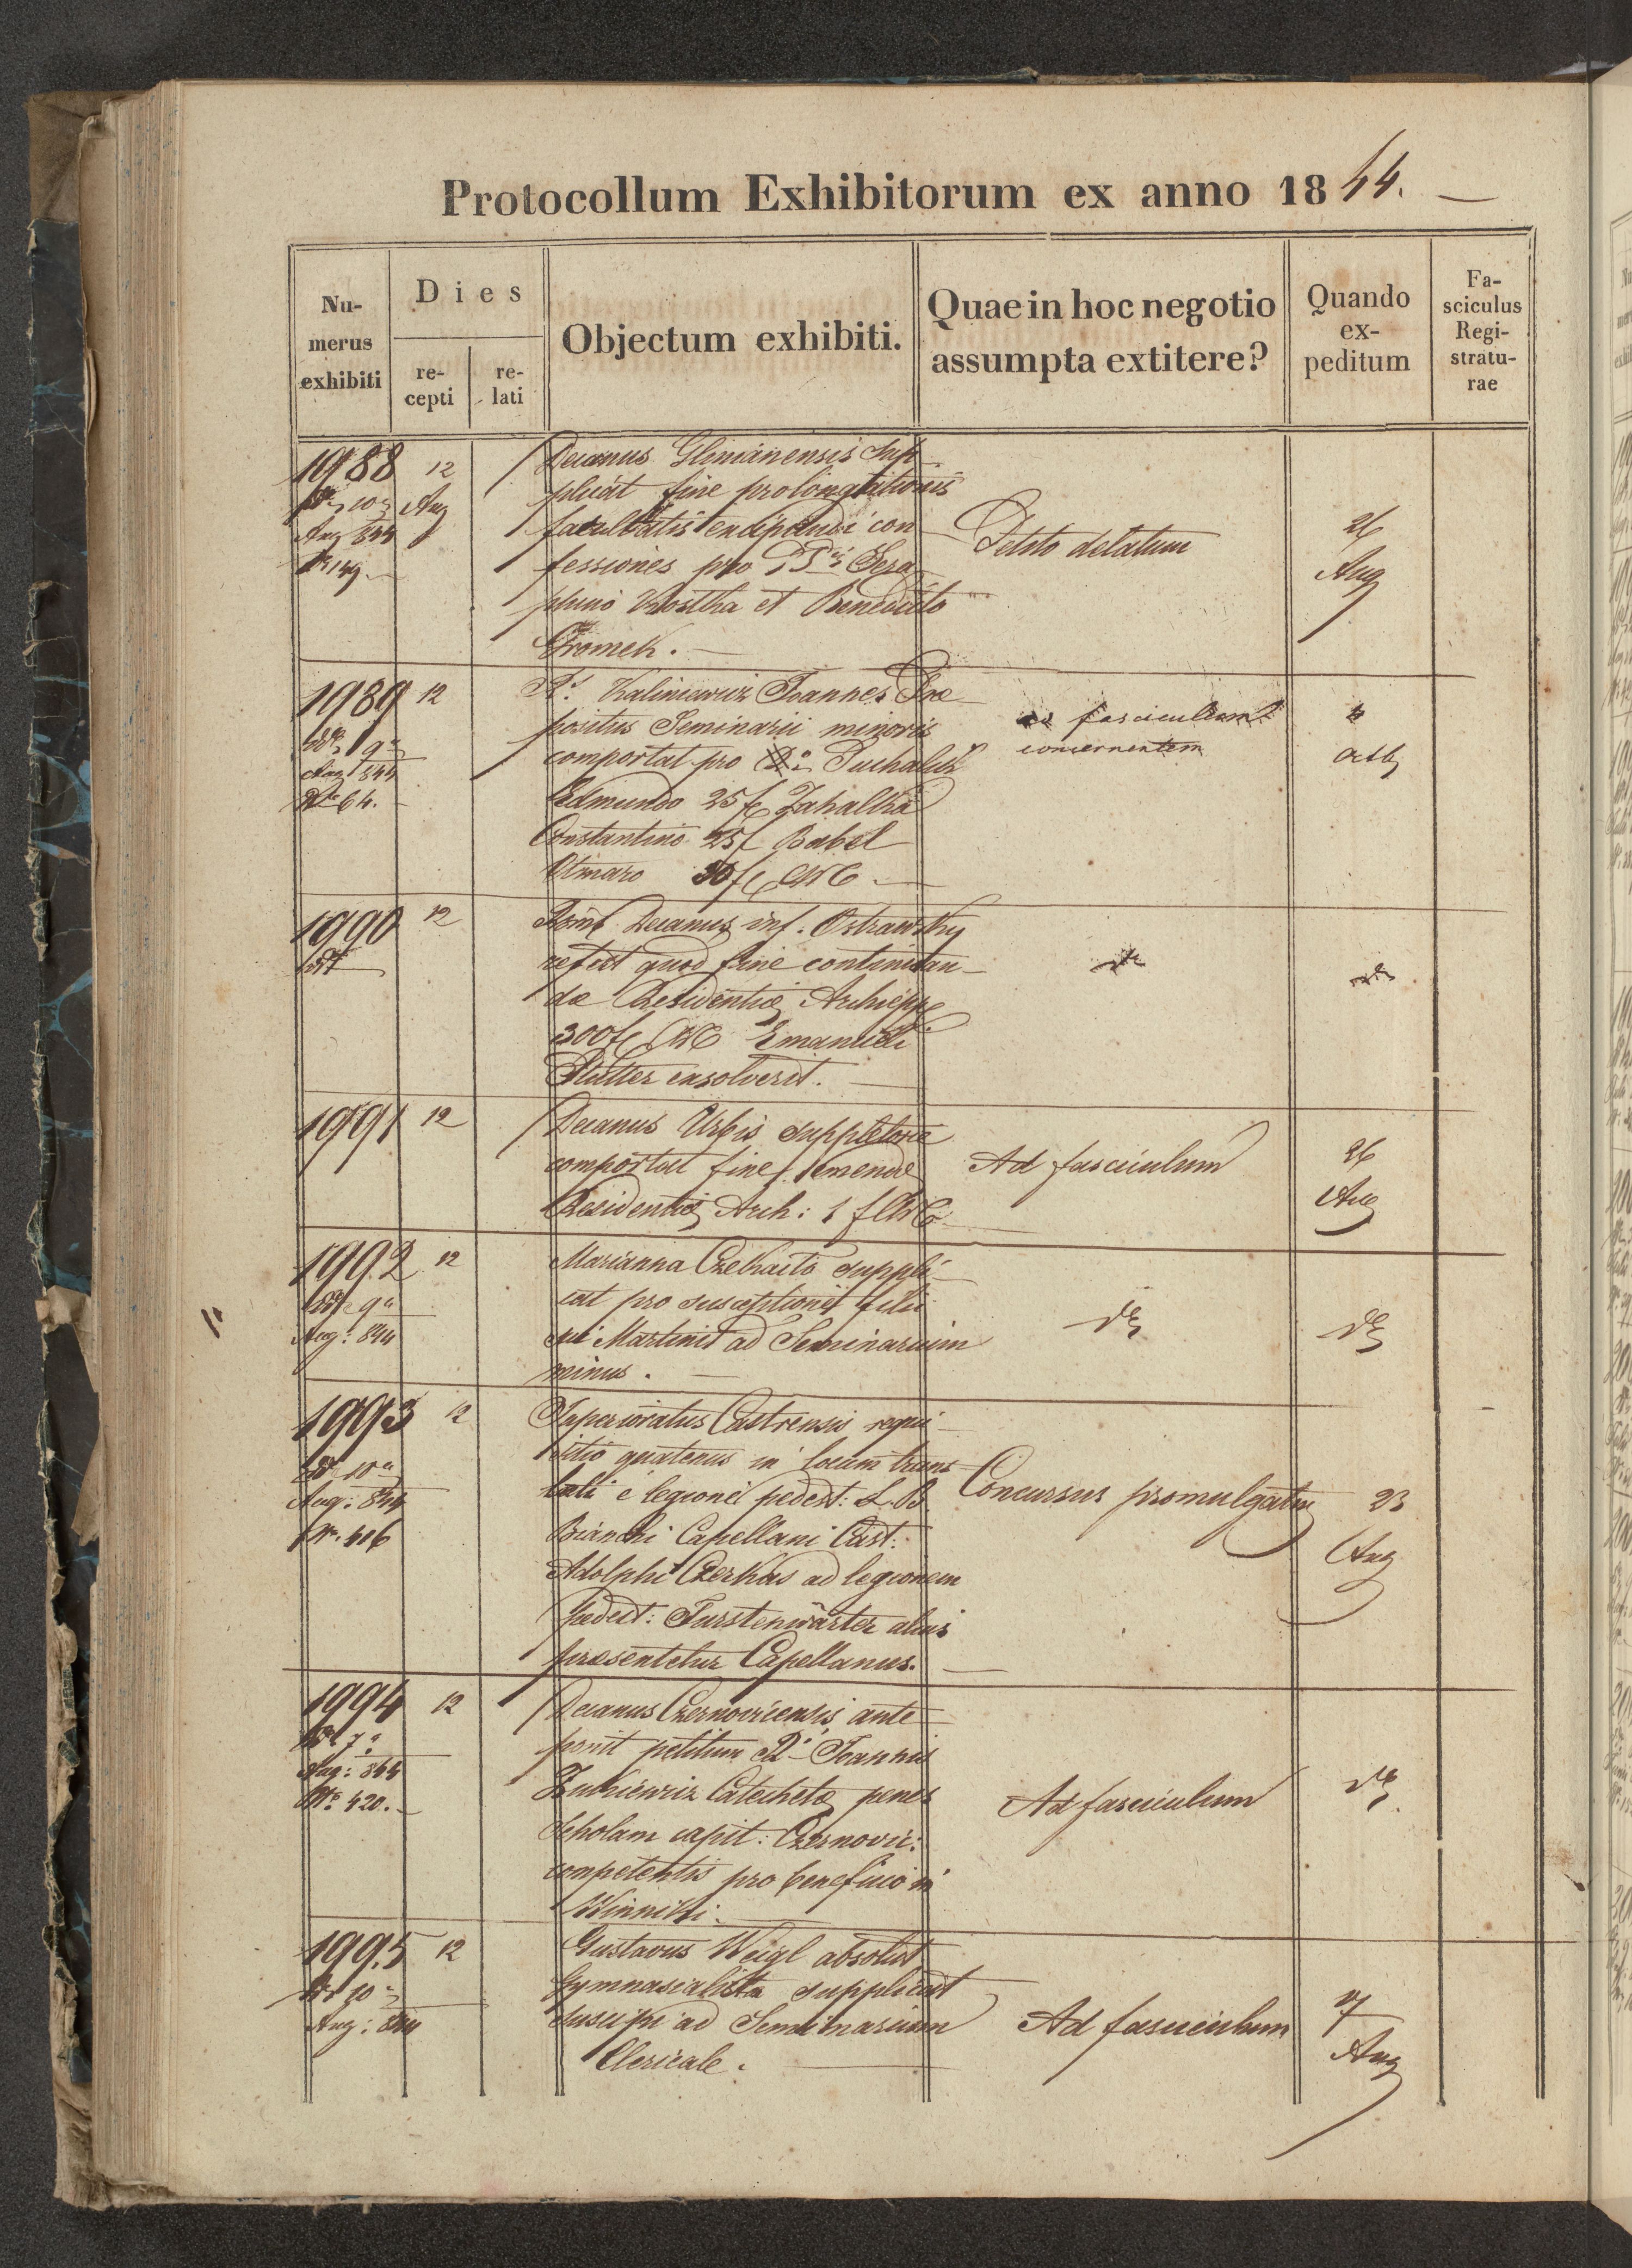 Protocollum Exhibitorum ex anno 1844.
Numerus exhibiti
Dies
recepti
relati
Objectum exhibiti.
Quae in hoc negotio assumpta extitere?
Quando expeditum
Fasciculus Registraturae
1988
12 Aug
10
Aug 844
Nr 149.
Decanus Glinianensis sup-
plicat fine prolongationis
facultatis excipiendi con-
fessiones pro
phino Kostka et Benedicto
Gromek.
Petito delatum
26
Aug
1989
12
9a
Aug 844
Nr 64.
Kaliniewicz Joannes Prae
positus Seminarii minoris
comportat pro
Edmundo 25 f
Constantino 25 f Babel
Otmaro 30 f MC
ad fasciculum
concernentem
Octb
1990
12
Decanus inf. Ostrawsky
refert quod fine continuan-
dae Residentiae Archieppe
300 f MC Emanueli
exsolverit.
1991
12
Decanus Urbis suppletorie
comportat fine emendae
Residentiae Arch: 1 f MC
Ad fasciculum
26
Aug
1992
12
9a
Aug: 844
Marianna suppli-
cat pro susceptione filii
sui Martini ad Seminarium
minus.
1993
12
10a
Aug: 844
Nr. 406
Superioratus Castrensis requi-
sitio quatenus in locum trans
lati e legione pedest: L. B.
Bianchi Capellani Cast:
Adolphi Czerkas ad legionem
pedest: Furstenwärter alius
praesentetur Capellanus.
Concursus promulgatur
23
Aug
1994
12
7a
Aug: 844
Nr. 420.
Decanus Czernovicensis ante
ponit petitum Joannis
Catechetae penes
Scholam capit: Czernovic:
competentis pro beneficio in
Winniki
Ad fasciculum
1995
12
10
Aug: 844
Gustavus Weigl absolut
Gymnasialista supplicat
suscipi ad Seminarium
Clericale.
Ad fasciculum
Aug